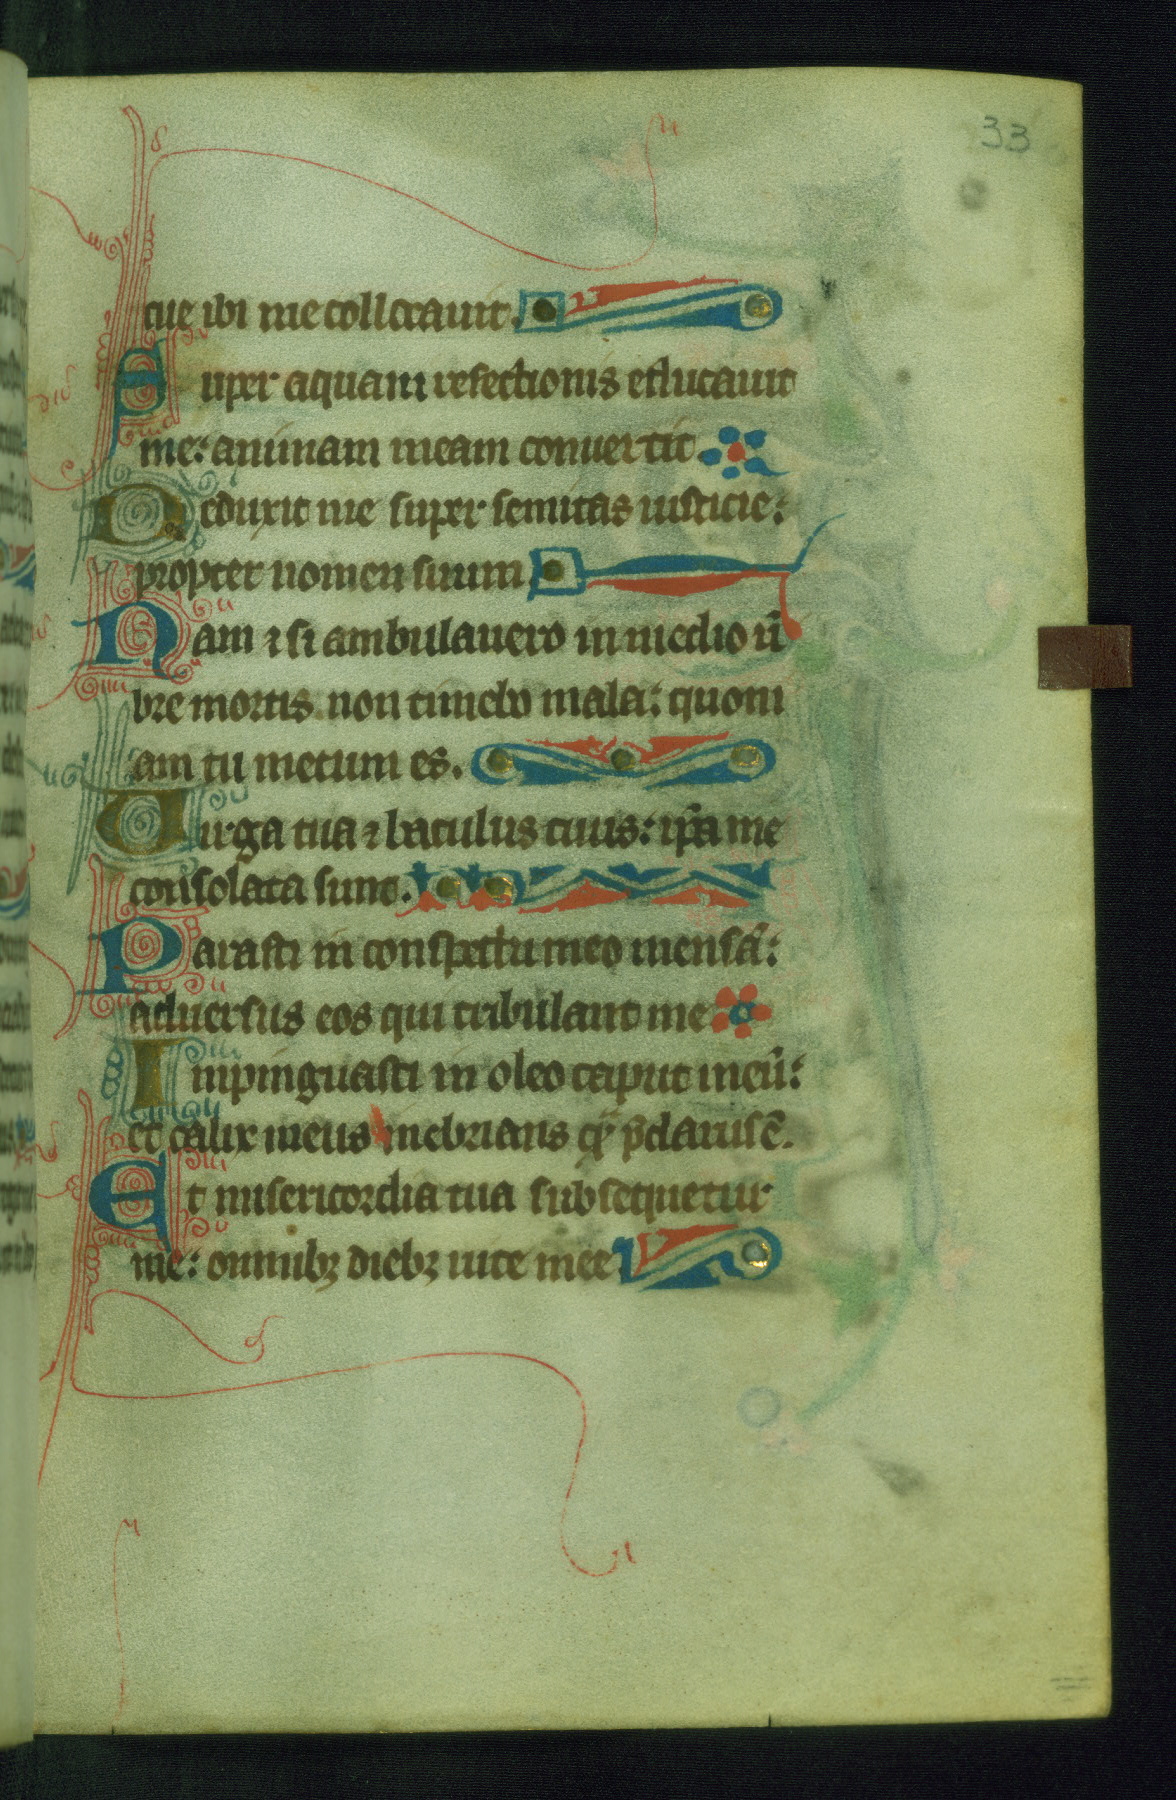 33
cue ibi me collocauit.
Super aquam refectionis educauit
me: animam meam conuertit.
Deduxit me super semitas iusticie:
propter nomen suum.
Nam ⁊ si ambulauero in medio ū
bre mortis non timebo mala: quoni
am tu mecum es.
Uirga tua ⁊ baculus tuus: ip̄a me
consolata sunt.
Parasti in conspectu meo mensā:
aduersus eos qui tribulant me
Inpinguasti in oleo caput meū:
et calix meus inebrians q̄ p̄clarus ē.
Et misericordia tua subsequetur
me: omnibꝫ diebꝫ uite mee